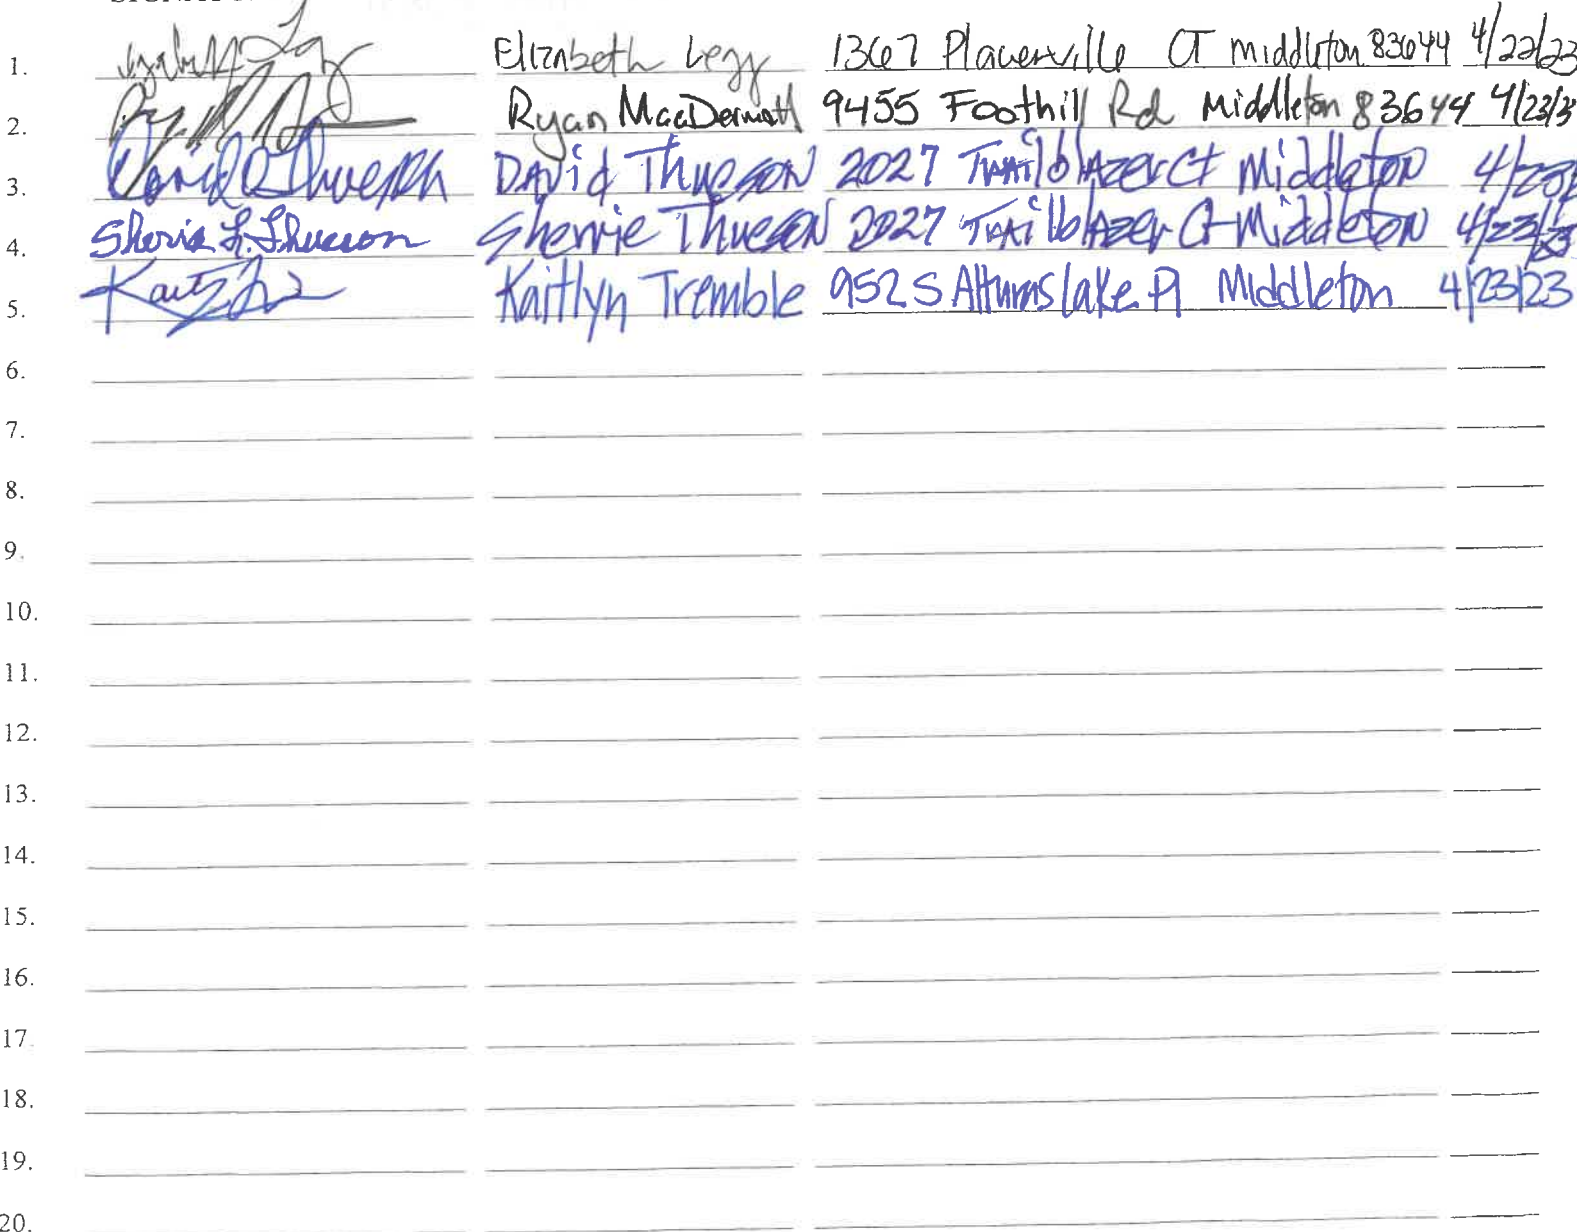 1. Elizabeth Legg 1367 Placerville CT Middleton 83644 4/22/23
2. Ryan MacDermott 9455 Foothill Rd Middleton 83644 4/23/23
3. David Thueson DAVid ThuesoN 2027 TrAilblAzer Ct Middleton
4. Sherrie L. Thueson Sherrie ThuesoN 2027 TrAilblAzer Ct Middleton 4/23/23
5. Kaitlyn Tremble 952 S Alturas lake Pl Middleton 4/23/23
6.
7.
8.
9.
10.
11.
12.
13.
14.
15.
16.
17.
18.
19.
20.